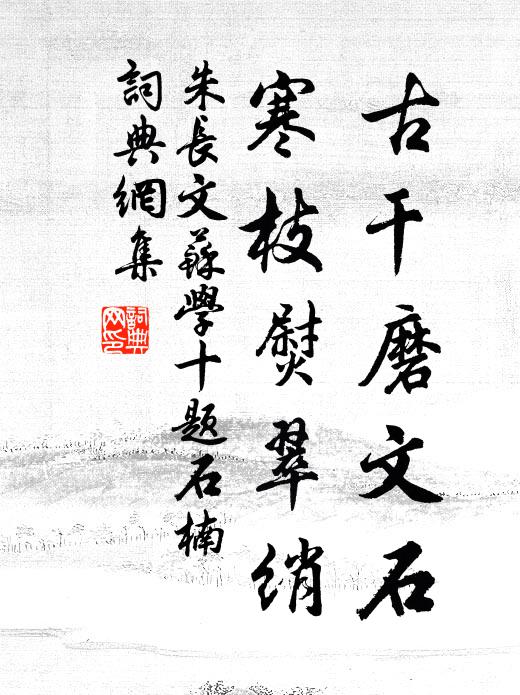 古干磨文石
寒枝熨翠綃
朱長文蘇學十題石楠
詞典網集
詞典网印